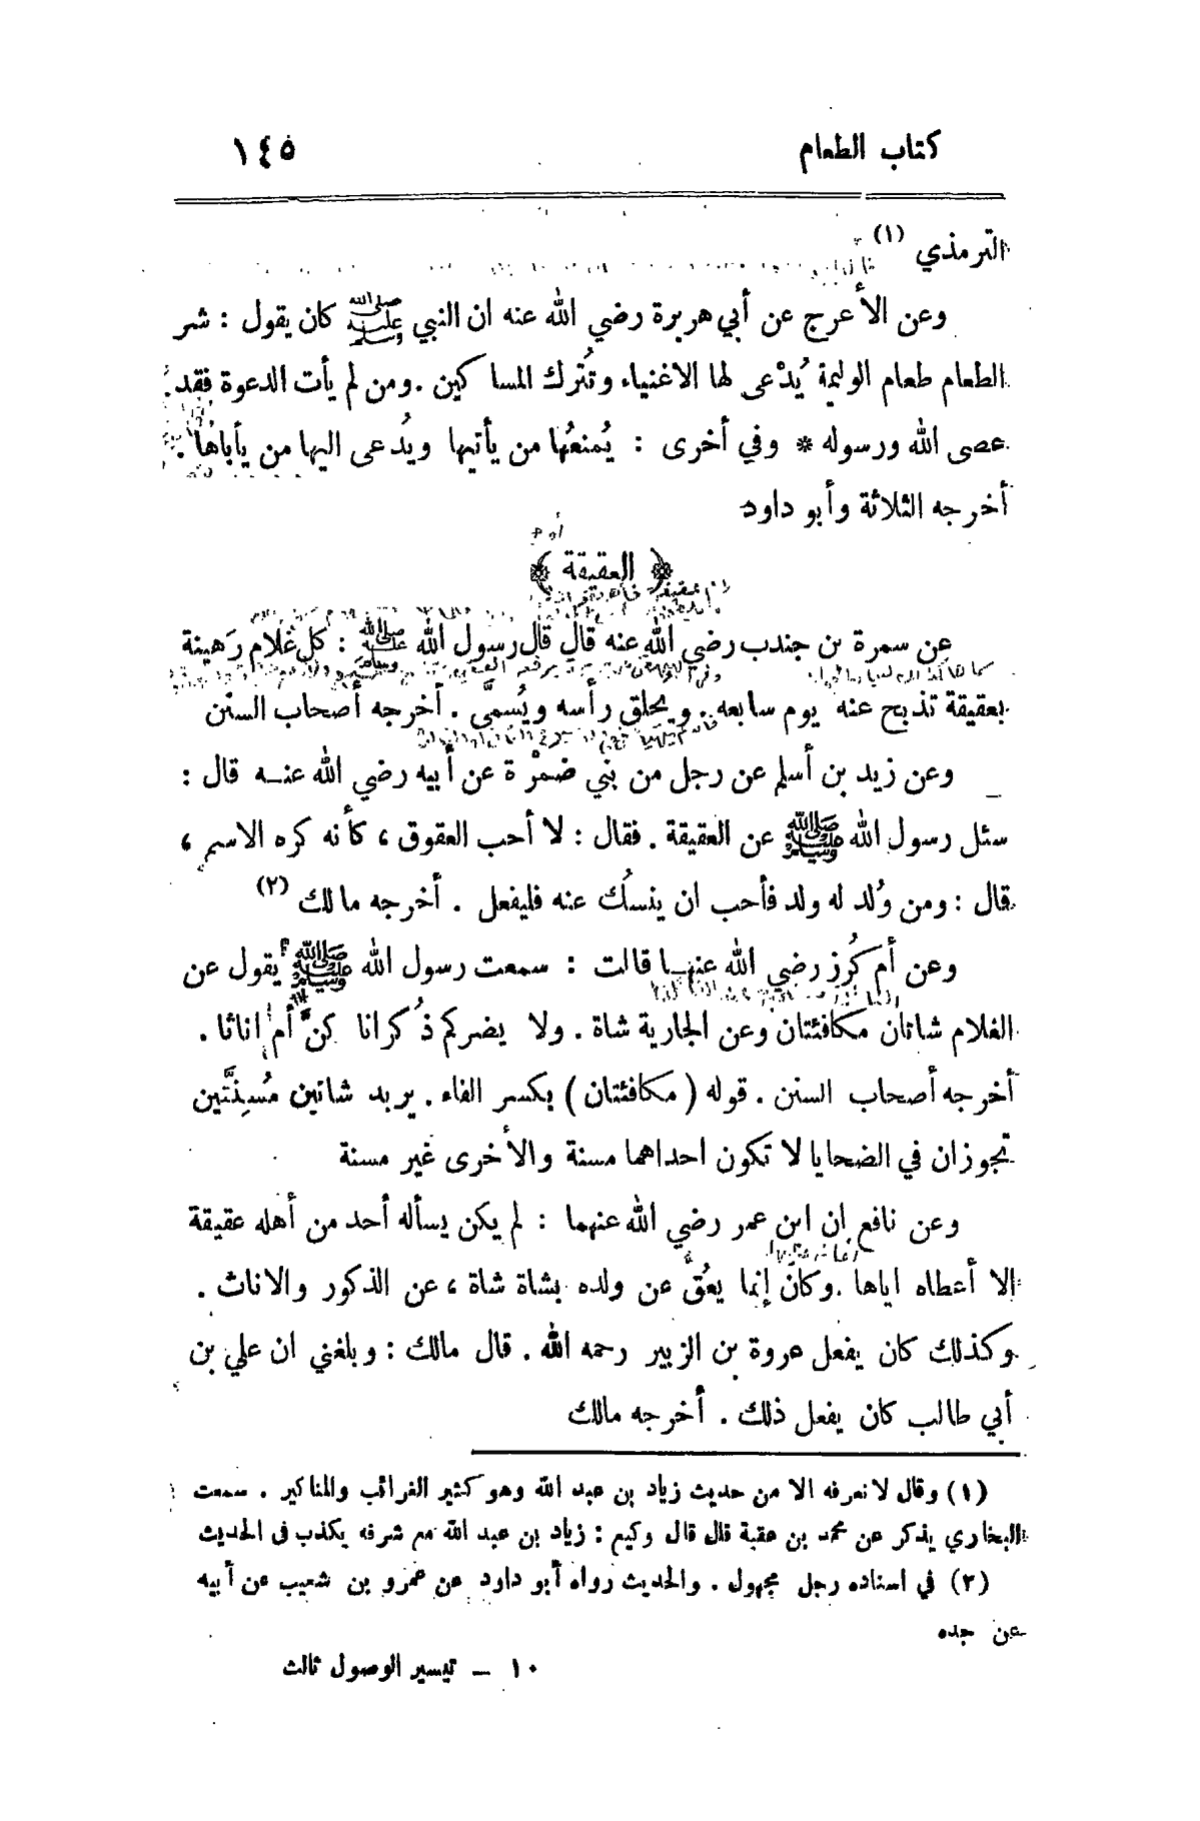 كتاب الطعام ١٤٥
الترمذي (١)
وعن الأعرج عن أبي هريرة رضي الله عنه ان النبي ﷺ كان يقول : شر
الطعام طعام الوليمة يُدْعى لها الاغنياء وتُترك المساكين . ومن لم يأت الدعوة فقد
عصى الله ورسوله * وفي أخرى : يُمنعُها من يأتيها ويُدعى اليها من يأباها .
أخرجه الثلاثة وأبو داود
﴿ العقيقة ﴾
عن سمرة بن جندب رضي الله عنه قال قال رسول الله ﷺ : كل غلام رَهينة
بعقيقة تذبح عنه يوم سابعه . ويحلق رأسه ويُسمَّى . أخرجه أصحاب السنن
وعن زيد بن أسلم عن رجل من بني ضمْرة عن أبيه رضي الله عنه قال :
سئل رسول الله ﷺ عن العقيقة . فقال : لا أحب العقوق ، كأنه كره الاسم ،
قال : ومن وُلد له ولد فأحب ان ينسُك عنه فليفعل . أخرجه مالك (٢)
وعن أم كُرز رضي الله عنها قالت : سمعت رسول الله ﷺ يقول عن
الغلام شاتان مكافئتان وعن الجارية شاة . ولا يضركم ذُكرانا كنَّ أم اناثا .
أخرجه أصحاب السنن . قوله ( مكافئتان ) بكسر الفاء . يريد شاتين مُسِنَّتَين
تجوزان في الضحايا لا تكون احداهما مسنة والأخرى غير مسنة
وعن نافع ان ابن عمر رضي الله عنهما : لم يكن يسأله أحد من أهله عقيقة
الا أعطاه اياها . وكان إنما يعُقّ عن ولده بشاة شاة ، عن الذكور والاناث .
وكذلك كان يفعل عروة بن الزبير رحمه الله . قال مالك : وبلغني ان علي بن
أبي طالب كان يفعل ذلك . أخرجه مالك
(١) وقال لا نعرفه الا من حديث زياد بن عبد الله وهو كثير الغرائب والمناكير . سمعت
البخاري يذكر عن محمد بن عقبة قال قال وكيع : زياد بن عبد الله مع شرفه يكذب في الحديث
(٢) في اسناده رجل مجهول . والحديث رواه أبو داود عن عمرو بن شعيب عن أبيه
عن جده
١٠ — تيسير الوصول ثالث